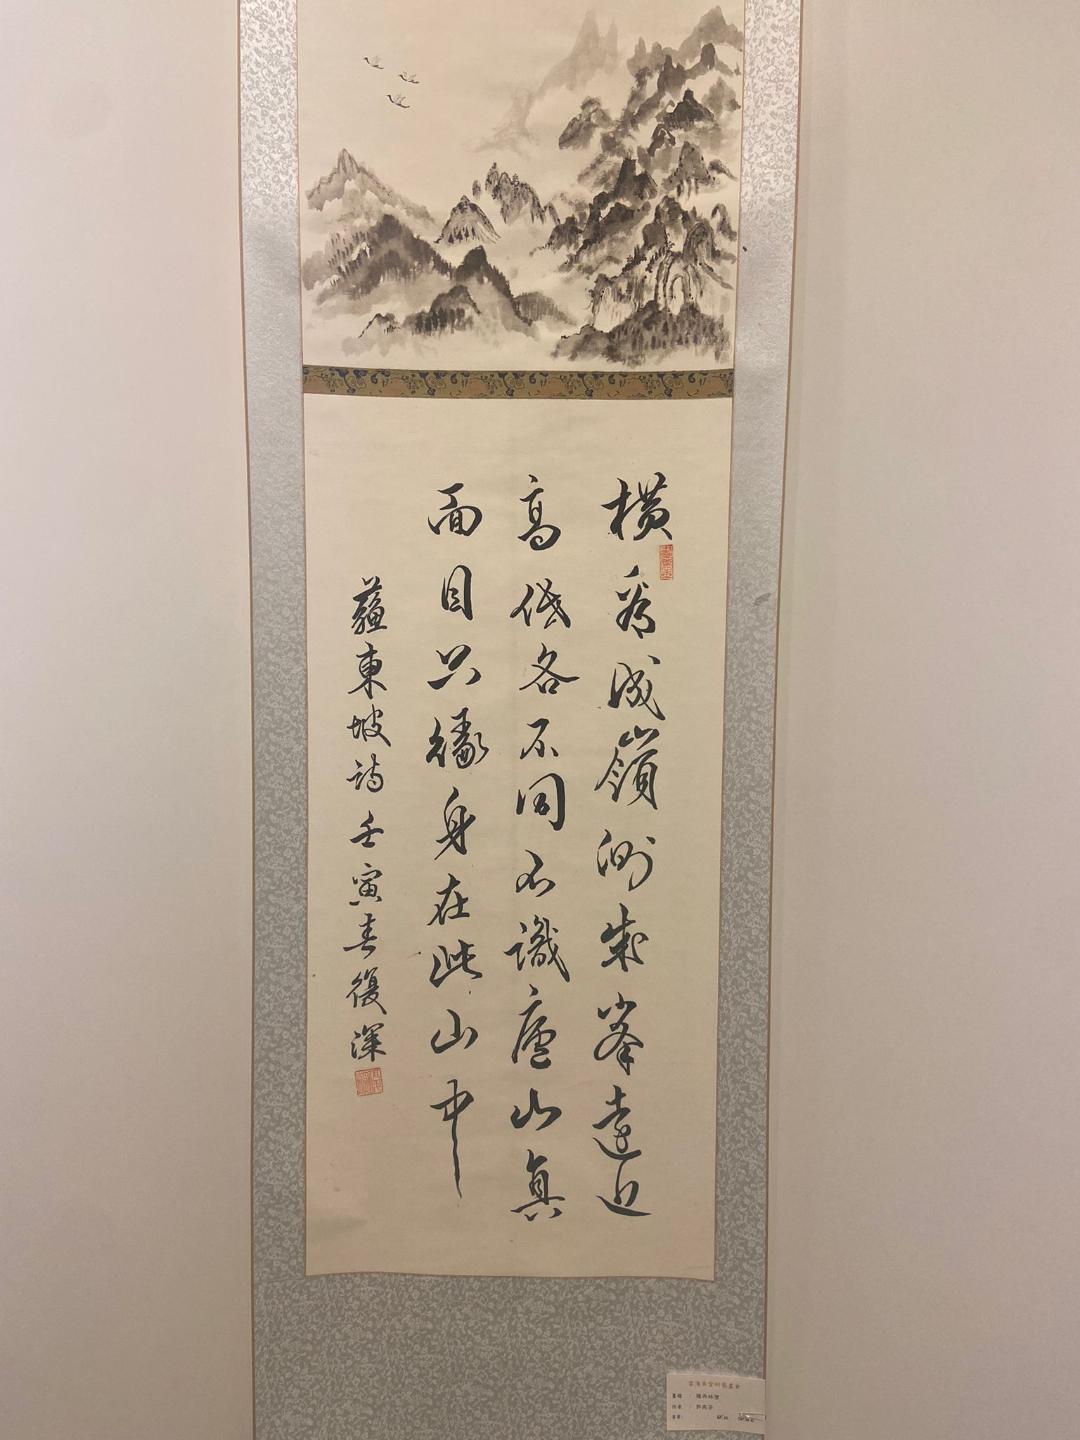 橫看成嶺側成峯遠近
高低各不同不識廬山真
面目只緣身在此山中
蘇東坡詩壬寅春復深